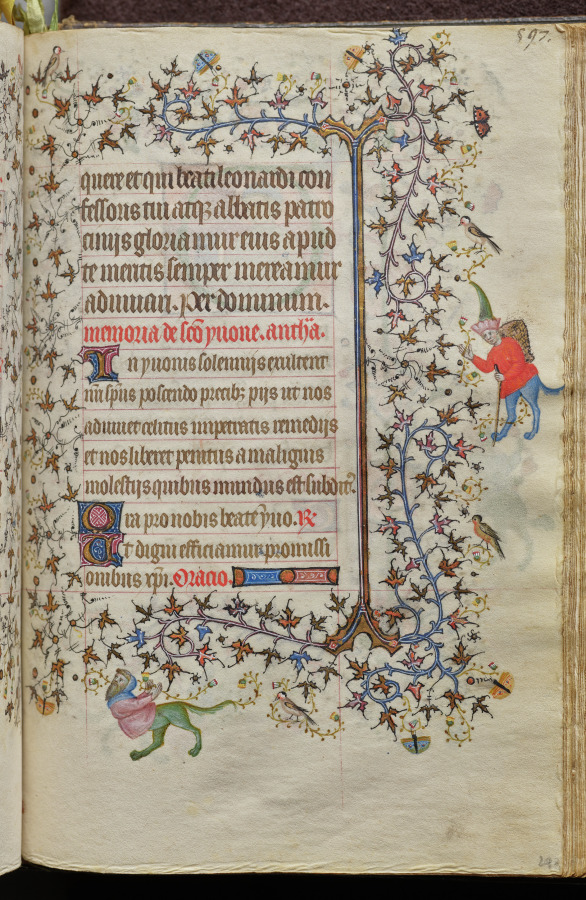 597.
quere et qui beati leonardi con
fessoris tui atq; abbatis patro
cinijs gloriamur eius apud
te meritis semper mereamur
adiuuari. Per dominum.
memoria de sco yuone. antha.
In yuonis solennijs exultent
poscendo precib; pijs ut nos
adiuuet celitus impetratis remedijs
et nos liberet penitus a malignis
molestijs quibus mundus est subdit
Ora pro nobis beate yuo. R
Et digni efficiamur promissi
onibus xpi. Oracio.